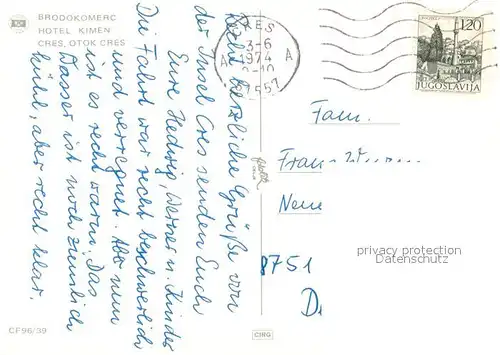 BRODOKOMERC
HOTEL KIMEN
CRES, OTOK CRES
Recht herzliche Grüße von
der Insel Cres senden Euch
Eure Hedwig, Werner u. Kinder
Die Fahrt war recht beschwerlich
und verregnet. Aber nun
ist es recht warm. Das
Wasser ist noch ziemlich
kühl, aber recht klar.
CRES
3-6
1974
A A
51557
1.20
JUGOSLAVIJA
Fam.
Franz
Neue
8751
D.
privacy protection
Datenschutz
CF96/39
CIRG